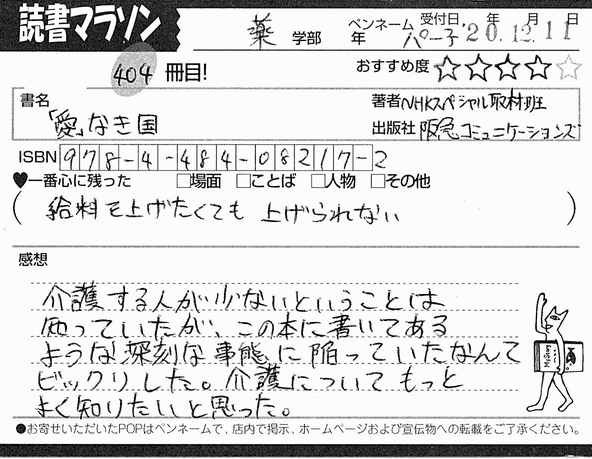 読書マラソン
薬 学部 年 ペンネーム パー子 受付日 '20年 12月 11日
404 冊目! おすすめ度 ★★★★☆
書名 「愛」なき国
著者 NHKスペシャル取材班
出版社 阪急コミュニケーションズ
ISBN 978-4-484-08217-2
♥一番心に残った □場面 □ことば □人物 □その他
( 給料を上げたくても 上げられない )
感想
介護する人が少ないということは
知っていたが、この本に書いてある
ような深刻な事態に陥っていたなんて
ビックリした。介護についてもっと
よく知りたいと思った。
●お寄せいただいたPOPはペンネームで、店内で掲示、ホームページおよび宣伝物への転載をご了承ください。